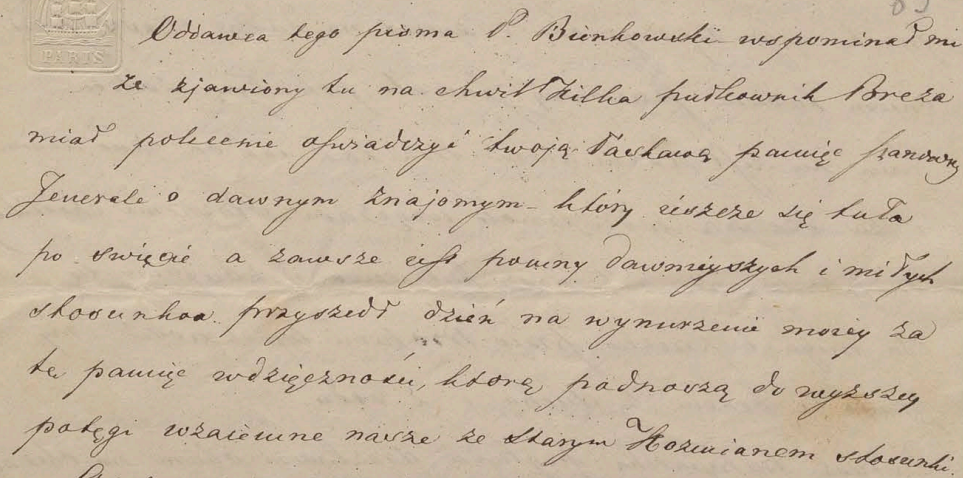 PARIS
Oddawca tego pisma P. Bienkowski wspominał mi
że zjawiony tu na chwil kilka pułkownik Breza
miał polecenie oświadczyć twoją łaskawą pamięć szanowny
Jenerale o dawnym znajomym - który ieszcze się tuła
po swięcie a zawsze iest pomny dawnieyszych i miłych
stosunkow przyszedł dzień na wynurzenie moiey za
tę pamięc wdzięczności, którą podnoszą do wyższey
potęgi wzaiemne nasze ze starym Kozmianem stosunki.